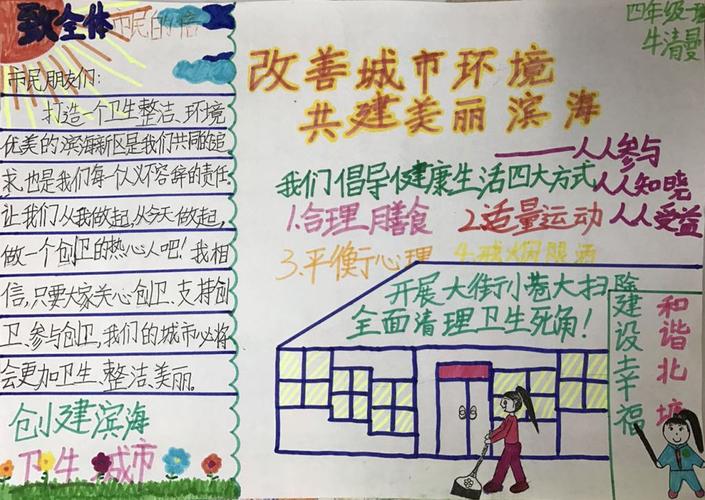 致全体市民的信
市民朋友们:
打造一个卫生整洁、环境
优美的滨海新区是我们共同的追
求,也是我们每个人义不容辞的责任
让我们从我做起,从今天做起,
做一个创卫的热心人吧!我相
信,只要大家关心创卫、支持创
卫、参与创卫,我们的城市必将
会更加卫生、整洁、美丽。
创建滨海
卫生城市
四年级一
牛清曼
改善城市环境
共建美丽滨海
——人人参与
人人知晓
人人受益
我们倡导健康生活四大方式
1.合理膳食
2.适量运动
3.平衡心理
4.戒烟限酒
开展大街小巷大扫除
全面清理卫生死角!
建设幸福
和谐北塘